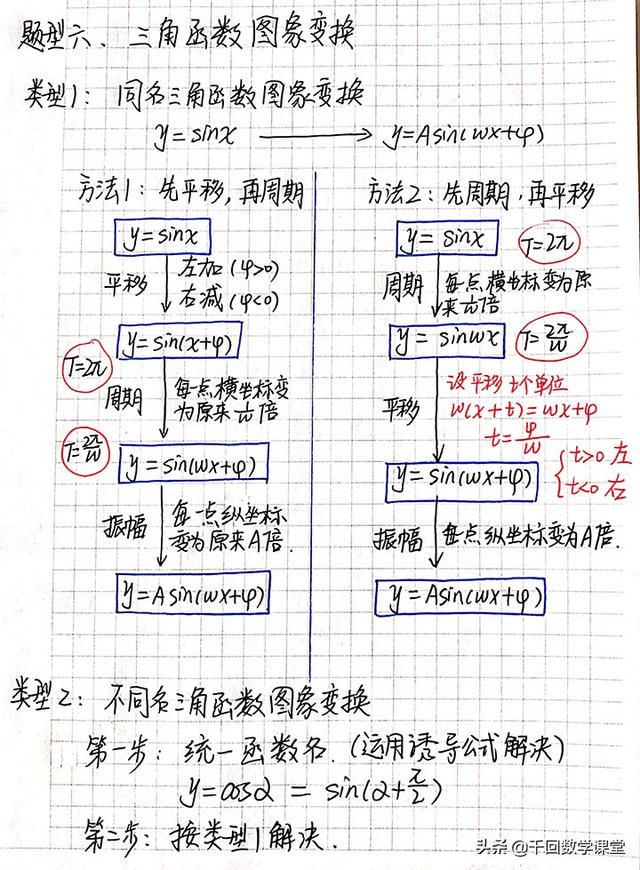 题型六、三角函数图象变换
类型1: 同名三角函数图象变换
y=sinx ⟶ y=Asin(wx+φ)
方法1: 先平移, 再周期
y=sinx
平移 左加(φ>0)
右减(φ<0)
y=sin(x+φ)
T=2π
周期 每一点横坐标变
为原来1/w倍
T=2π/w
y=sin(wx+φ)
振幅 每一点纵坐标
变为原来A倍.
y=Asin(wx+φ)
方法2: 先周期, 再平移
y=sinx
T=2π
周期 每一点横坐标变为原
来1/w倍
y=sinwx
T=2π/w
平移 设平移t个单位
w(x+t)=wx+φ
t=φ/w
{t>0 左
t<0 右
y=sin(wx+φ)
振幅 每点纵坐标变为A倍.
y=Asin(wx+φ)
类型2: 不同名三角函数图象变换
第一步: 统一函数名.(运用诱导公式解决)
y=cosα=sin(α+π/2)
第二步: 按类型1解决.
头条@千回数学课堂